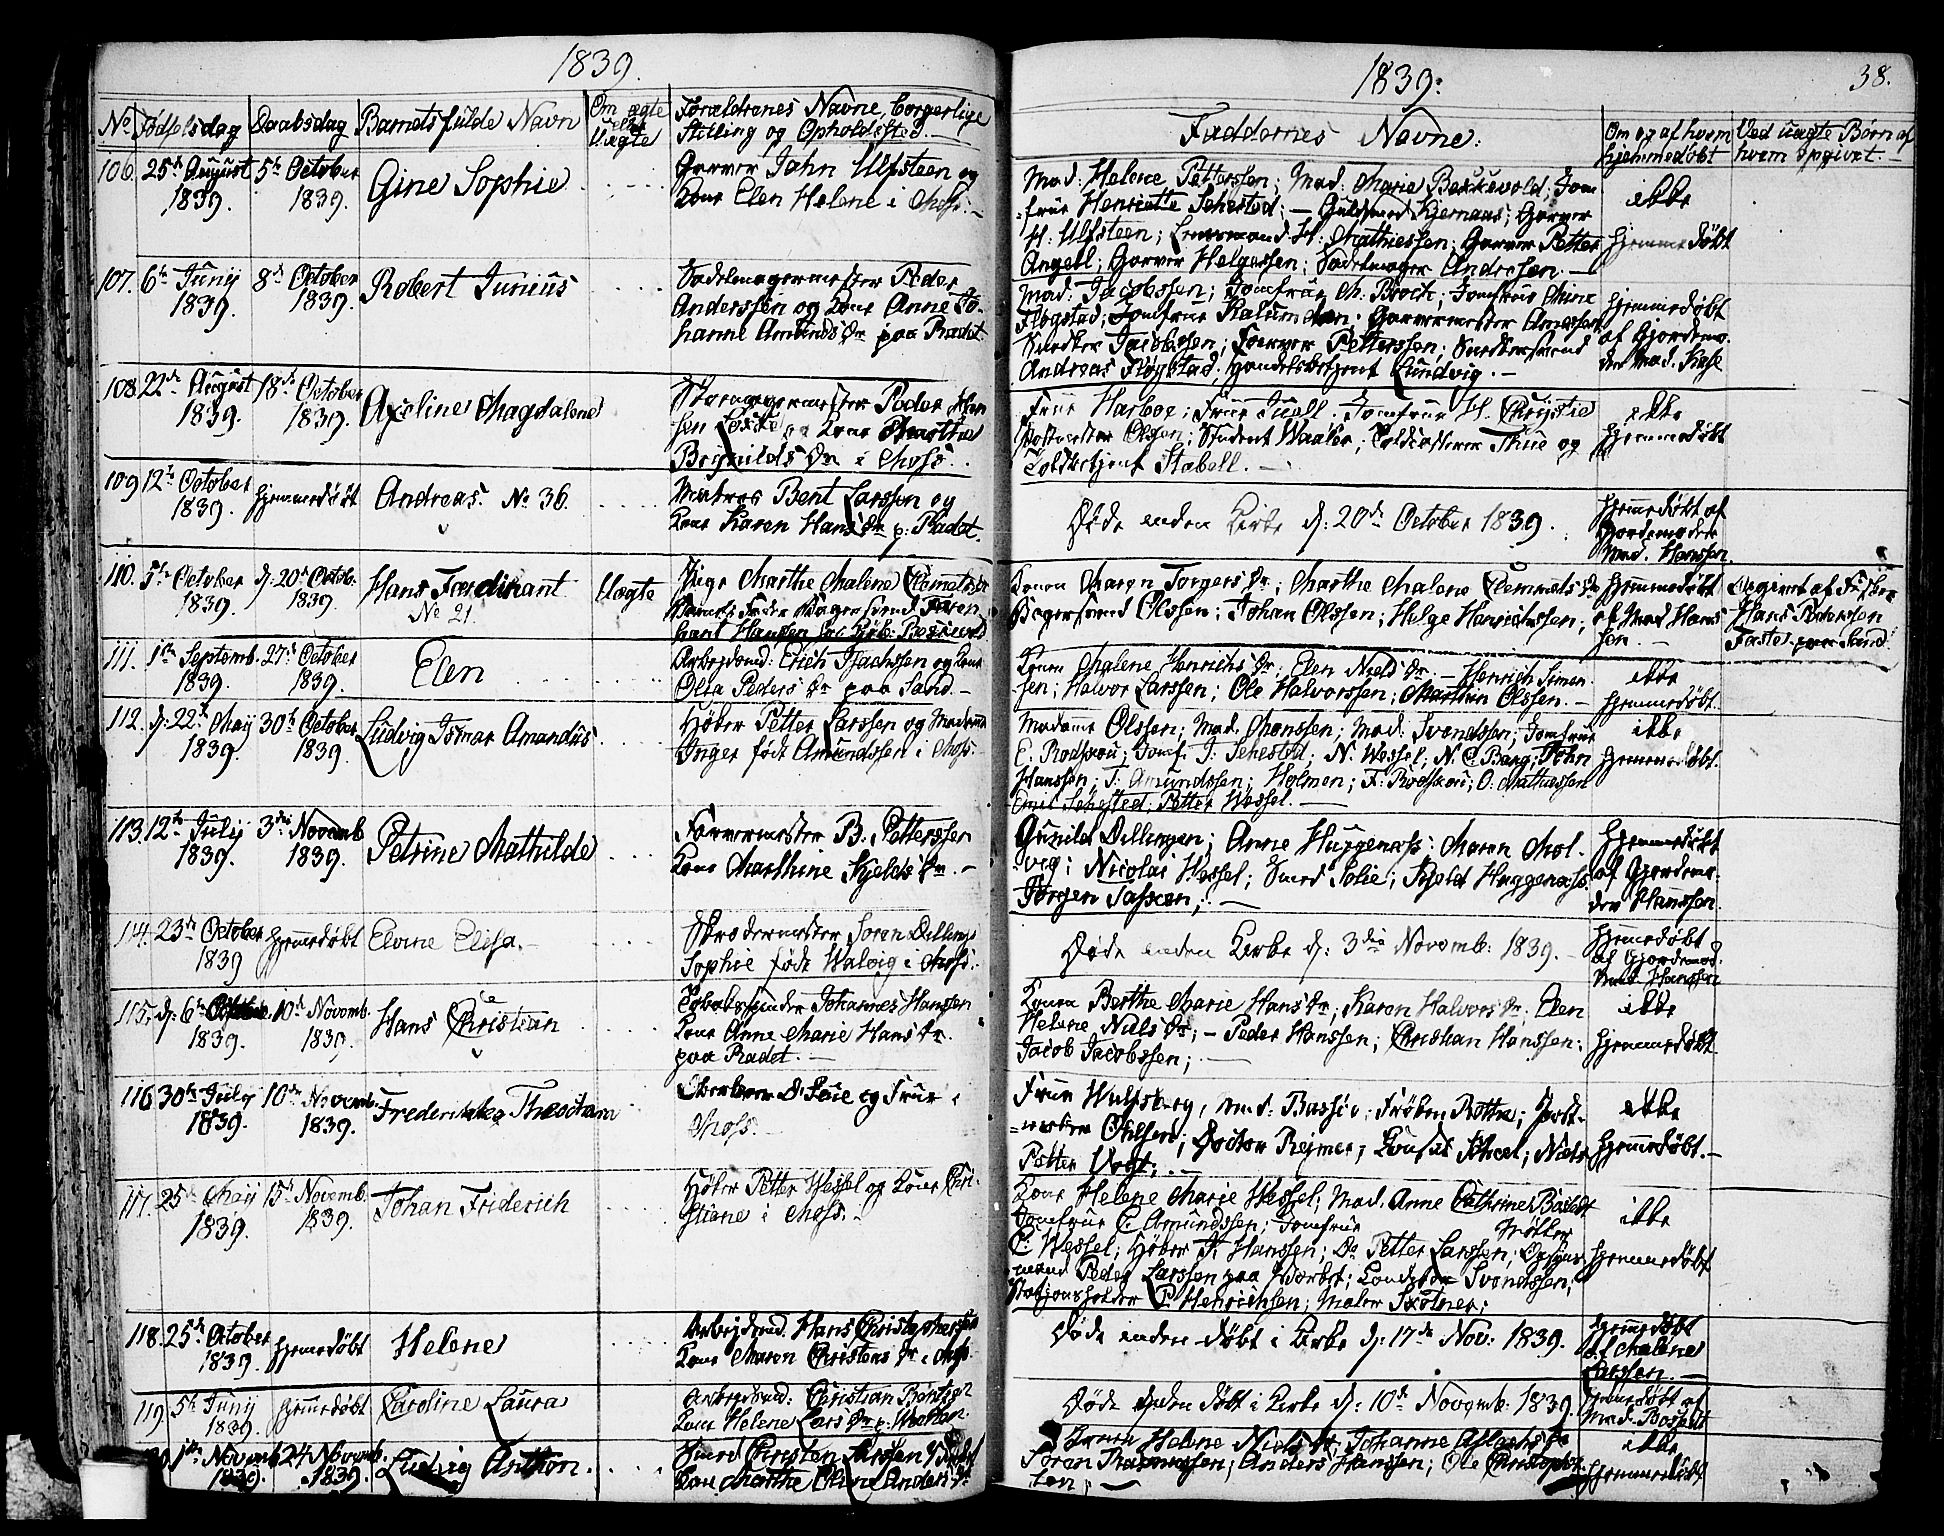 1839.
No Fødselsdag Daabsdag Barnets fulde Navn Om ægte eller Uægte Forældrenes Navne, borgerlige Stilling og Opholdssted.
106. 25de August 1839. 5te October 1839. Gine Sophie
Garver Jahn Ulfsteen og
Kone Elen Helene i Moss.
107. 6te Junij 1839. 8de October 1839. Robert Junius
Sadelmagermester Peder
Anderssen og Kone Anne Jo-
hanne Amunds Dr paa Radet
108. 22de August 1839. 18de October 1839. Axeline Magdalene
Peder
og Kone Marthe
i Moss.
109 12te October 1839. hjemmedøbt Andreas. No 36.
Matros Bent Larssen og
Kone Karen Hans Dr p: Radet.
110. 5te October 1839. d: 20de Octob. 1839. Hans Færdinant No 21. Uægte
Pige Marthe Malene Clemets Dr
Hanssen
111. 1te Septemb. 1839. 27de October 1839. Elen
Arbejdsmd: Erich Isachssen og Kone
Olia Peders Dr paa Sand.
112. d: 22de Maij 1839. 30te October 1839. Ludvig Ismar Amandus
Høker Petter Larssen og Madame
Inger født Amundssen i Moss.
113. 12te Julij 1839. 3die Novemb 1839. Petrine Mathilde
Farvermester B. Petterssen
Kone Marthine Kjelds Dr.
114. 23de October 1839 hjemmedøbt Elvine Elisa.
Skrædermester Søren Dillings
Sophie født Walvig i Moss.
115. d: 6te 1839. 10de Novemb. 1839. Hans Christian
Tobaksspinder Johannes Hanssen
Kone Anne Marie Hans Dr
paa Radet.
116 30te Julij 1839. 10de Novemb. 1839. Frederikka Theodora
og Frue i
Moss.
117. 25de Maij 1839. 15de Novemb. 1839. Johan Friderich
Høker Petter Wessel og Kone Chri-
stiane i Moss.
118. 25de October 1839. hjemmedøbt Helene
Arbejdsmd. Hans Christophersen
Kone Maren Christens Dr i Moss.
119 5te Junij 1839. hjemmedøbt Caroline Laura
Arbejdsmd: Christian
Kone Helene Lars Dr p:
120 1te Novemb 1839 24 Novemb. 1839. Ludvig Anthon.
Smed Christen Larssen
Kone Marthe Oline Anders Dr
1839: 38.
Faddernes Navne: Om og af hvem hjemmedøbt Ved uægte Børn af hvem opgivet.
Mad: Helene Petterssen; Mad: Marie Bekkevold; Jom-
frue Henriette Sehested; — Guldsmed Kjernaas; Garver
H: Ulfsteen; Lensmand H: Mathiessen; Garver Petter
Angell; Garver Helgessen; Sadelmager Andresen.
ikke hjemmedøbt
Mad: Jacobssen; Jomfrue M. Broch; Jomfrue Mine
Fløgstad; Jomfrue; Garvermester Anessen
Snedker Jacobssen; Farver Petterssen; Snedkersvend
Andreas Fløgstad; Handelsbetjent Lundvig.
hjemmedøbt af Gjordemo-
der Mad.
Frue Harboe; Frue Juell. Jomfrue H. Christie
Postmester Olssen; Student Waaler; Toldkasserer Thue og
Toldbetjent Stabell.
ikke hjemmedøbt
Døde inden Kirke d: 20de October 1839.
hjemmedøbt af
Gjordemoder
Mad. Hanssen
Konen Maren Torgers Dr; Marthe Malene Clemmets Dr
Bagersvend Olssen; Johan Olssen; Helge Henrichssen;
hjemmedøbt af Mad Hans-
sen.
Opgivet af
Hans Pederssen
Konen Malene Henrichs Dr: Elen Niels Dr: — Henrich Simen-
sen; Halvor Larssen; Ole Halvorssen; Mathias Olssen.
ikke hjemmedøbt.
Madame Olssen; Mad. Monssen; Mad. Svendssen; Jomfrue
E. Rodskou; Jomf. J. Sehested; N. Wessel; N. C. Bang; John
Hanssen; T. Amundssen; Holmen; F. Rodskou; O: Mathiassen
Emil Sehested; Petter Wessel.
ikke hjemmedøbt.
Gunild Dillingøen; Anne Huggenæss: Maren Mol-
vig; Nicolai Wessel; Smed Solie; Kjeld Huggenæss.
Jørgen
hjemmedøbt af Gjordemo-
der Hanssen.
Døde inden Kirke d: 3die Novemb: 1839.
hjemmedøbt
af Gjordemod.
Mad Hanssen
Konen Berthe Marie Hans Dr; Karen Halvors Dr: Elen
Helene Niels Dr; — Peder Hanssen; Christian Hanssen;
Jacob Jacobssen;
ikke hjemmedøbt
Frue Wulfsberg, Mad: Bassøe; Frøken Rothe; Post-
mester Ohlsen; Doctor Rejmer; Consul; Niels
Petter Vogt;
ikke hjemmedøbt.
Kone Helene Marie Wessel; Mad. Anne Cathrine
Jomfrue C. Amundssen; Jomfrue
C: Wessel; Høker J. Hanssen; Do Petter Larssen;
mand Peder Larssen paa Svendssen;
P. Henrichsen; Maler
ikke hjemmedøbt
Døde inden døbt i Kirke d: 17de Nov: 1839.
hjemmedøbt
af Malene
Larssen.
Døde inden døbt i Kirke d: 10de Novemb: 1839.
hjemmedøbt af
Mad.
Konen Helene Niels Dr Johanne
Søren Rasmussen; Anders Hanssen; Ole Christoph-
sen;
ikke hjemmedøbt